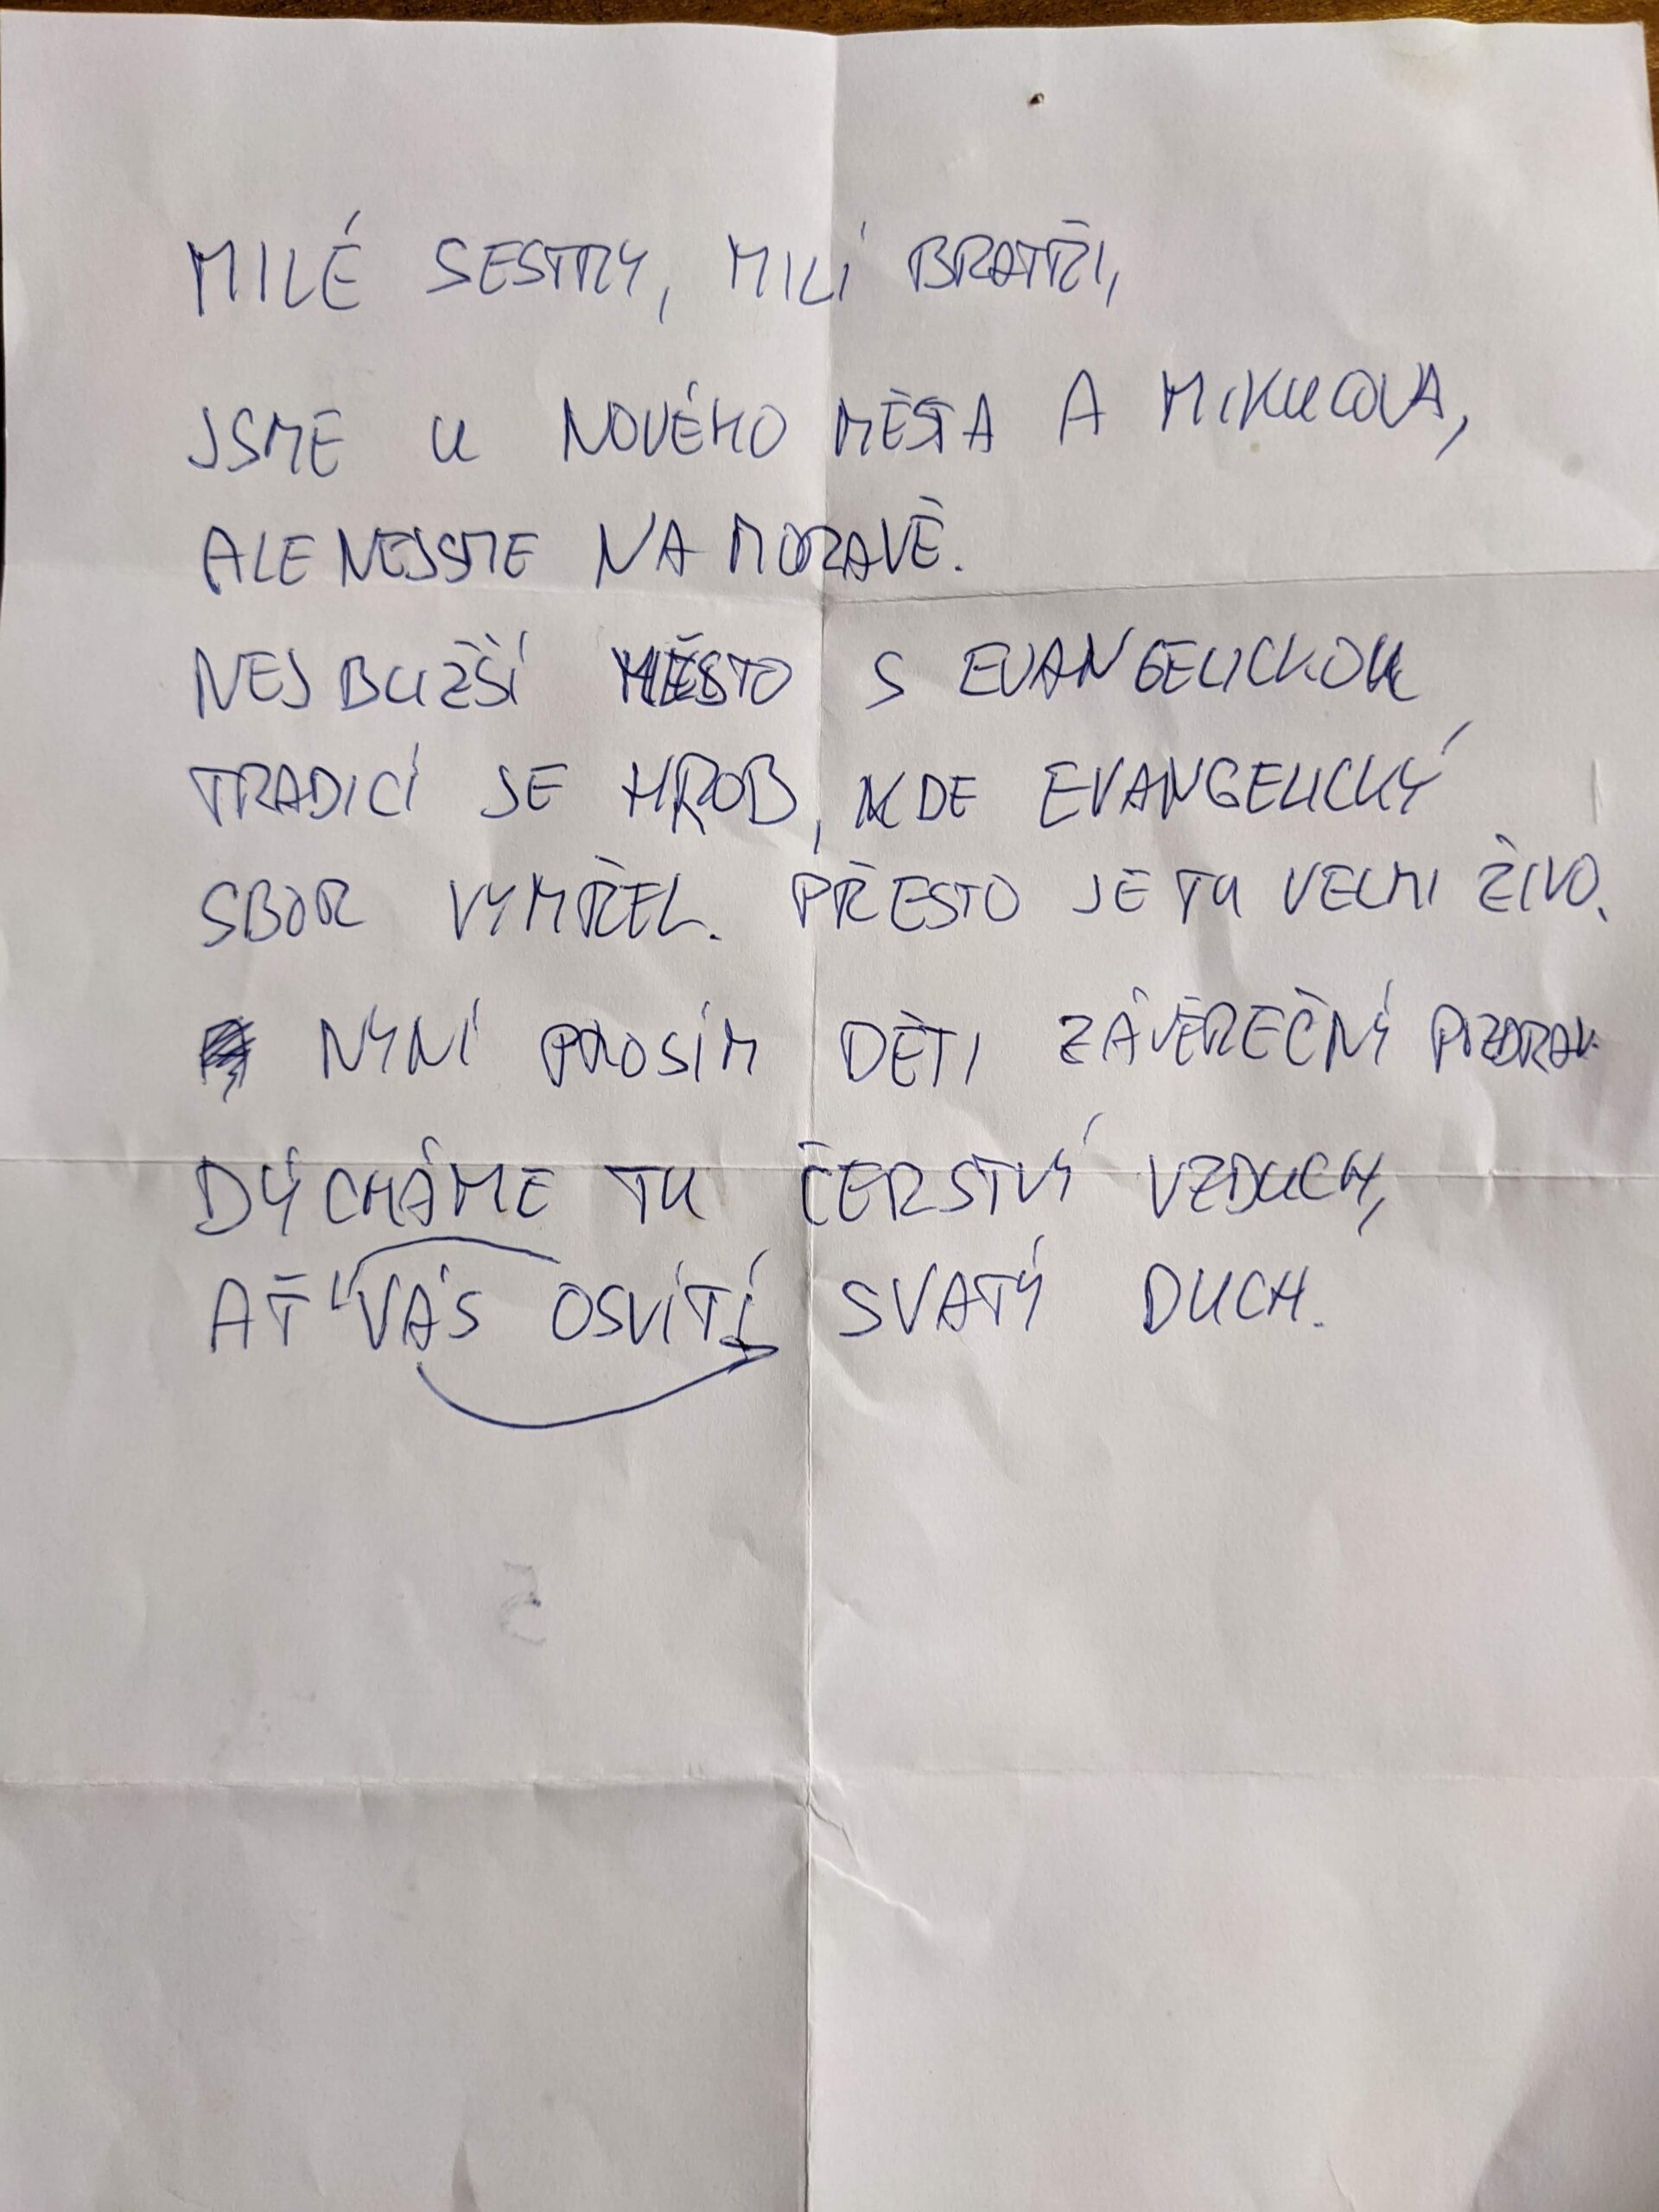 MILÉ SESTRY, MILÍ BRATŘI,
JSME U NOVÉHO MĚSTA A MIKULOVA,
ALE NEJSME NA MORAVĚ.
NEJBLIŽŠÍ MĚSTO S EVANGELICKOU
TRADICÍ JE HROB, KDE EVANGELICKÝ
SBOR VYMŘEL. PŘESTO JE TU VELMI ŽIVO.
NYNÍ PROSÍM DĚTI ZÁVĚREČNÝ POZDRAV.
DÝCHÁME TU ČERSTVÝ VZDUCH,
AŤ VÁS OSVÍTÍ SVATÝ DUCH.